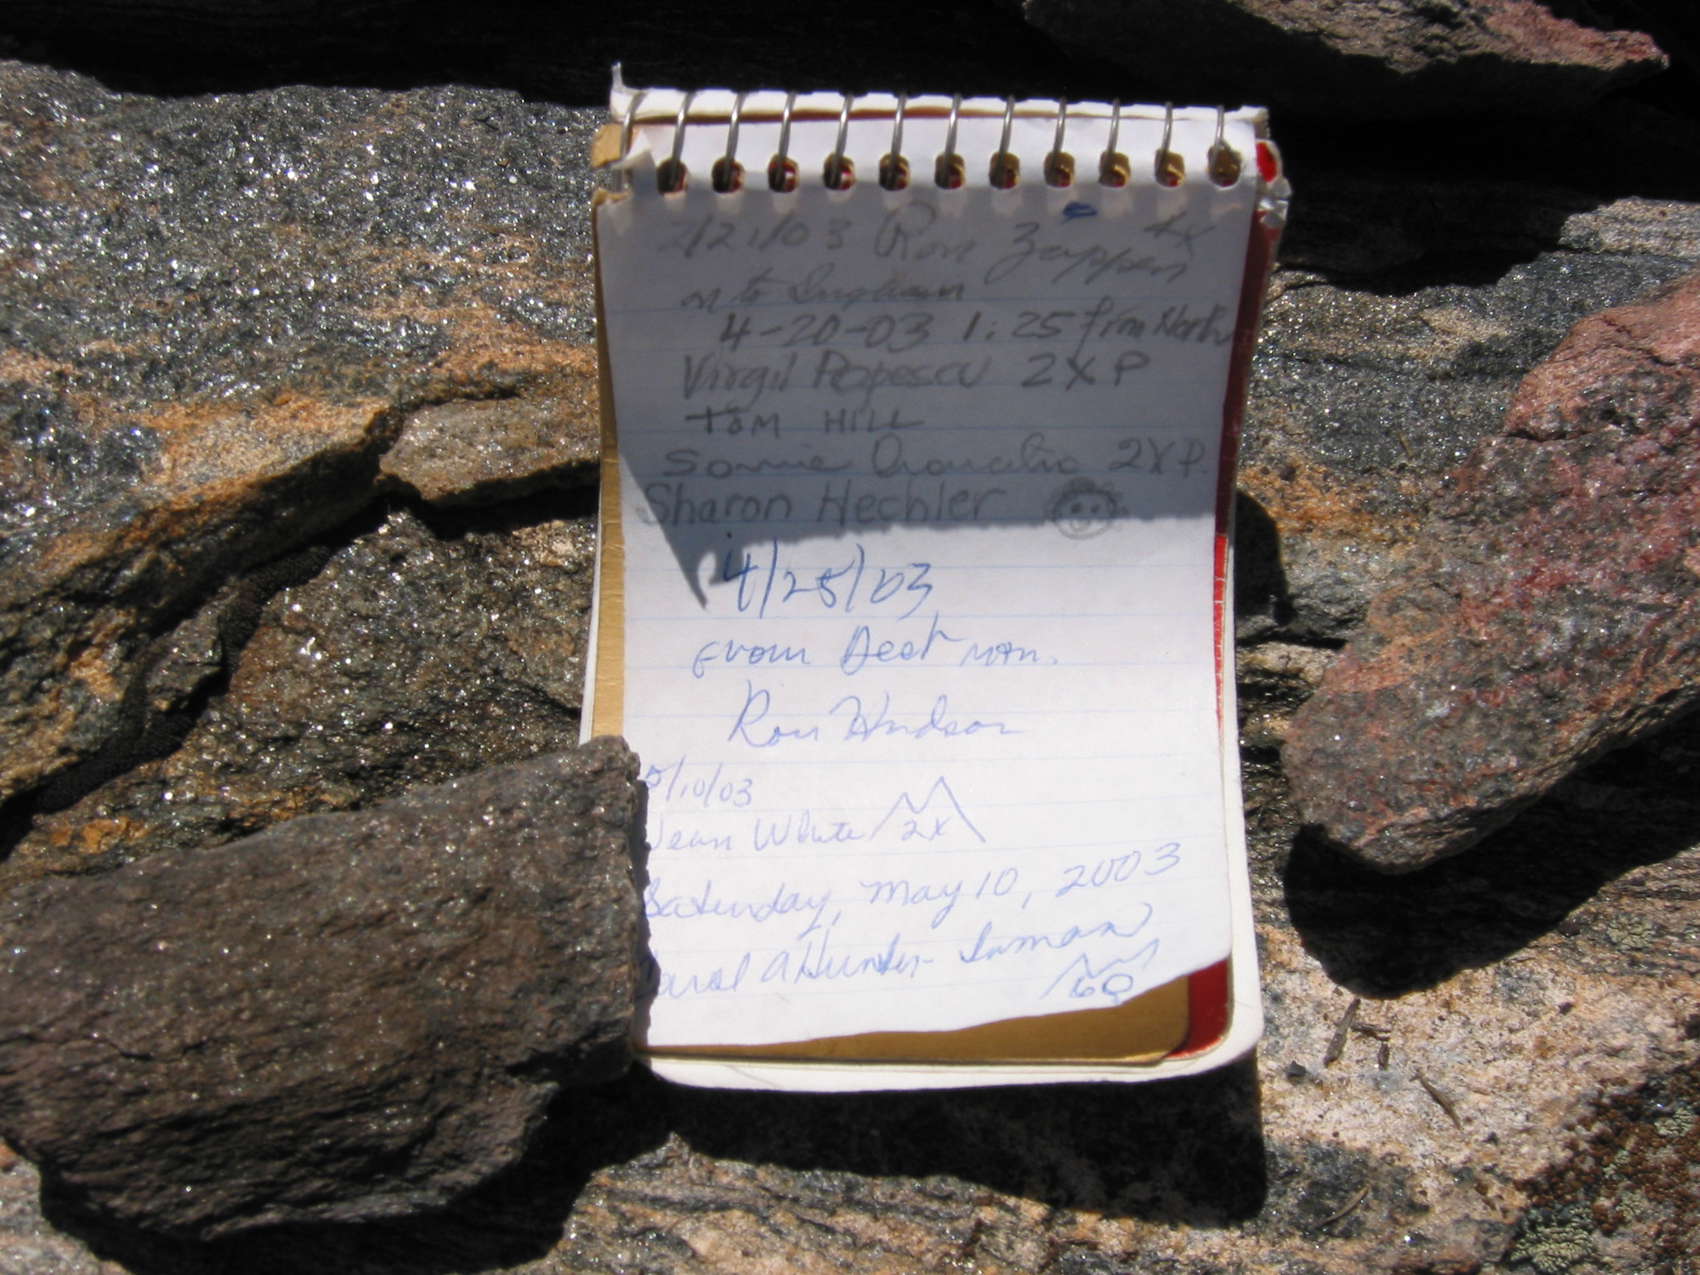 2/21/03 Ron Zappen 4x
on to Ingham
4-20-03 1:25 from North
Virgil Popescu 2XP
TOM HILL
2XP.
Sharon Hechler
4/25/03
From Deet mtn.
Ron Hudson
5/10/03
Jean White 2x
Saturday, May 10, 2003
Carol A Hunter-Inman